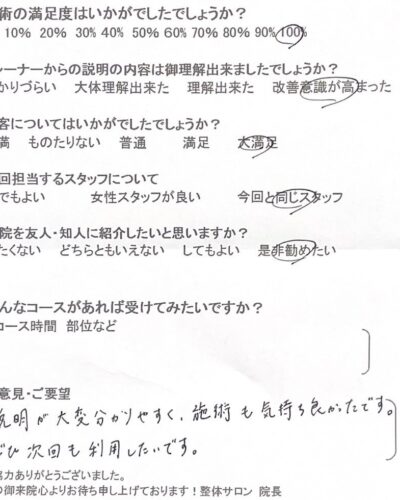 術の満足度はいかがでしたでしょうか?
10% 20% 30% 40% 50% 60% 70% 80% 90% 100%
レーナーからの説明の内容は御理解出来ましたでしょうか?
かりづらい 大体理解出来た 理解出来た 改善意識が高まった
客についてはいかがでしたでしょうか?
満 ものたりない 普通 満足 大満足
回担当するスタッフについて
でもよい 女性スタッフが良い 今回と同じスタッフ
院を友人・知人に紹介したいと思いますか?
たくない どちらともいえない してもよい 是非勧めたい
んなコースがあれば受けてみたいですか?
コース時間 部位など
意見・ご要望
説明が大変分かりやすく、施術も気持ち良かったです。
ぜひ次回も利用したいです。
協力ありがとうございました。
の御来院心よりお待ち申し上げております!整体サロン 院長